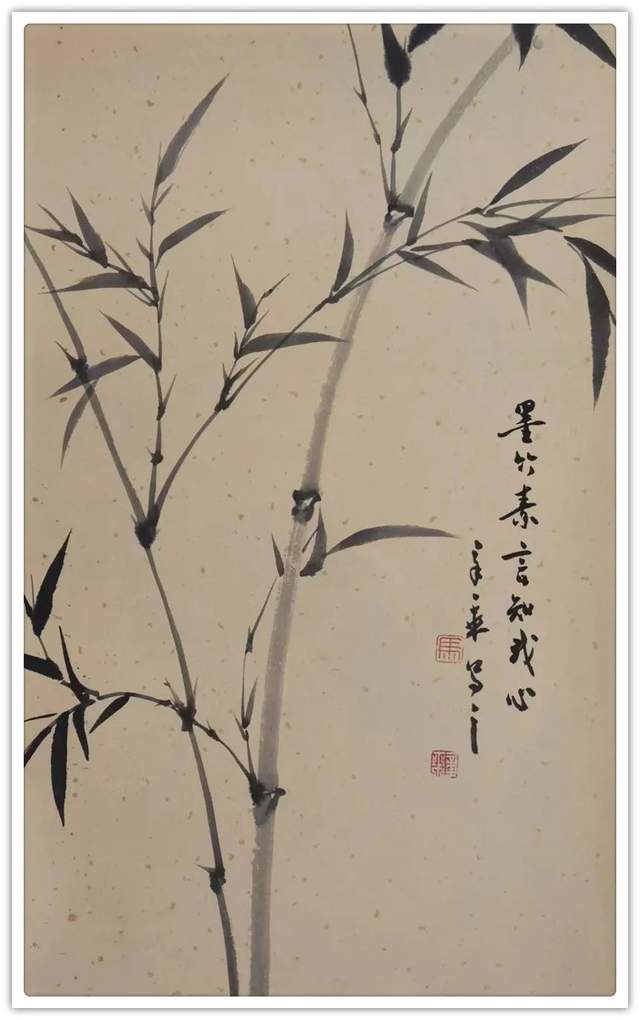 墨竹素言知我心
写之